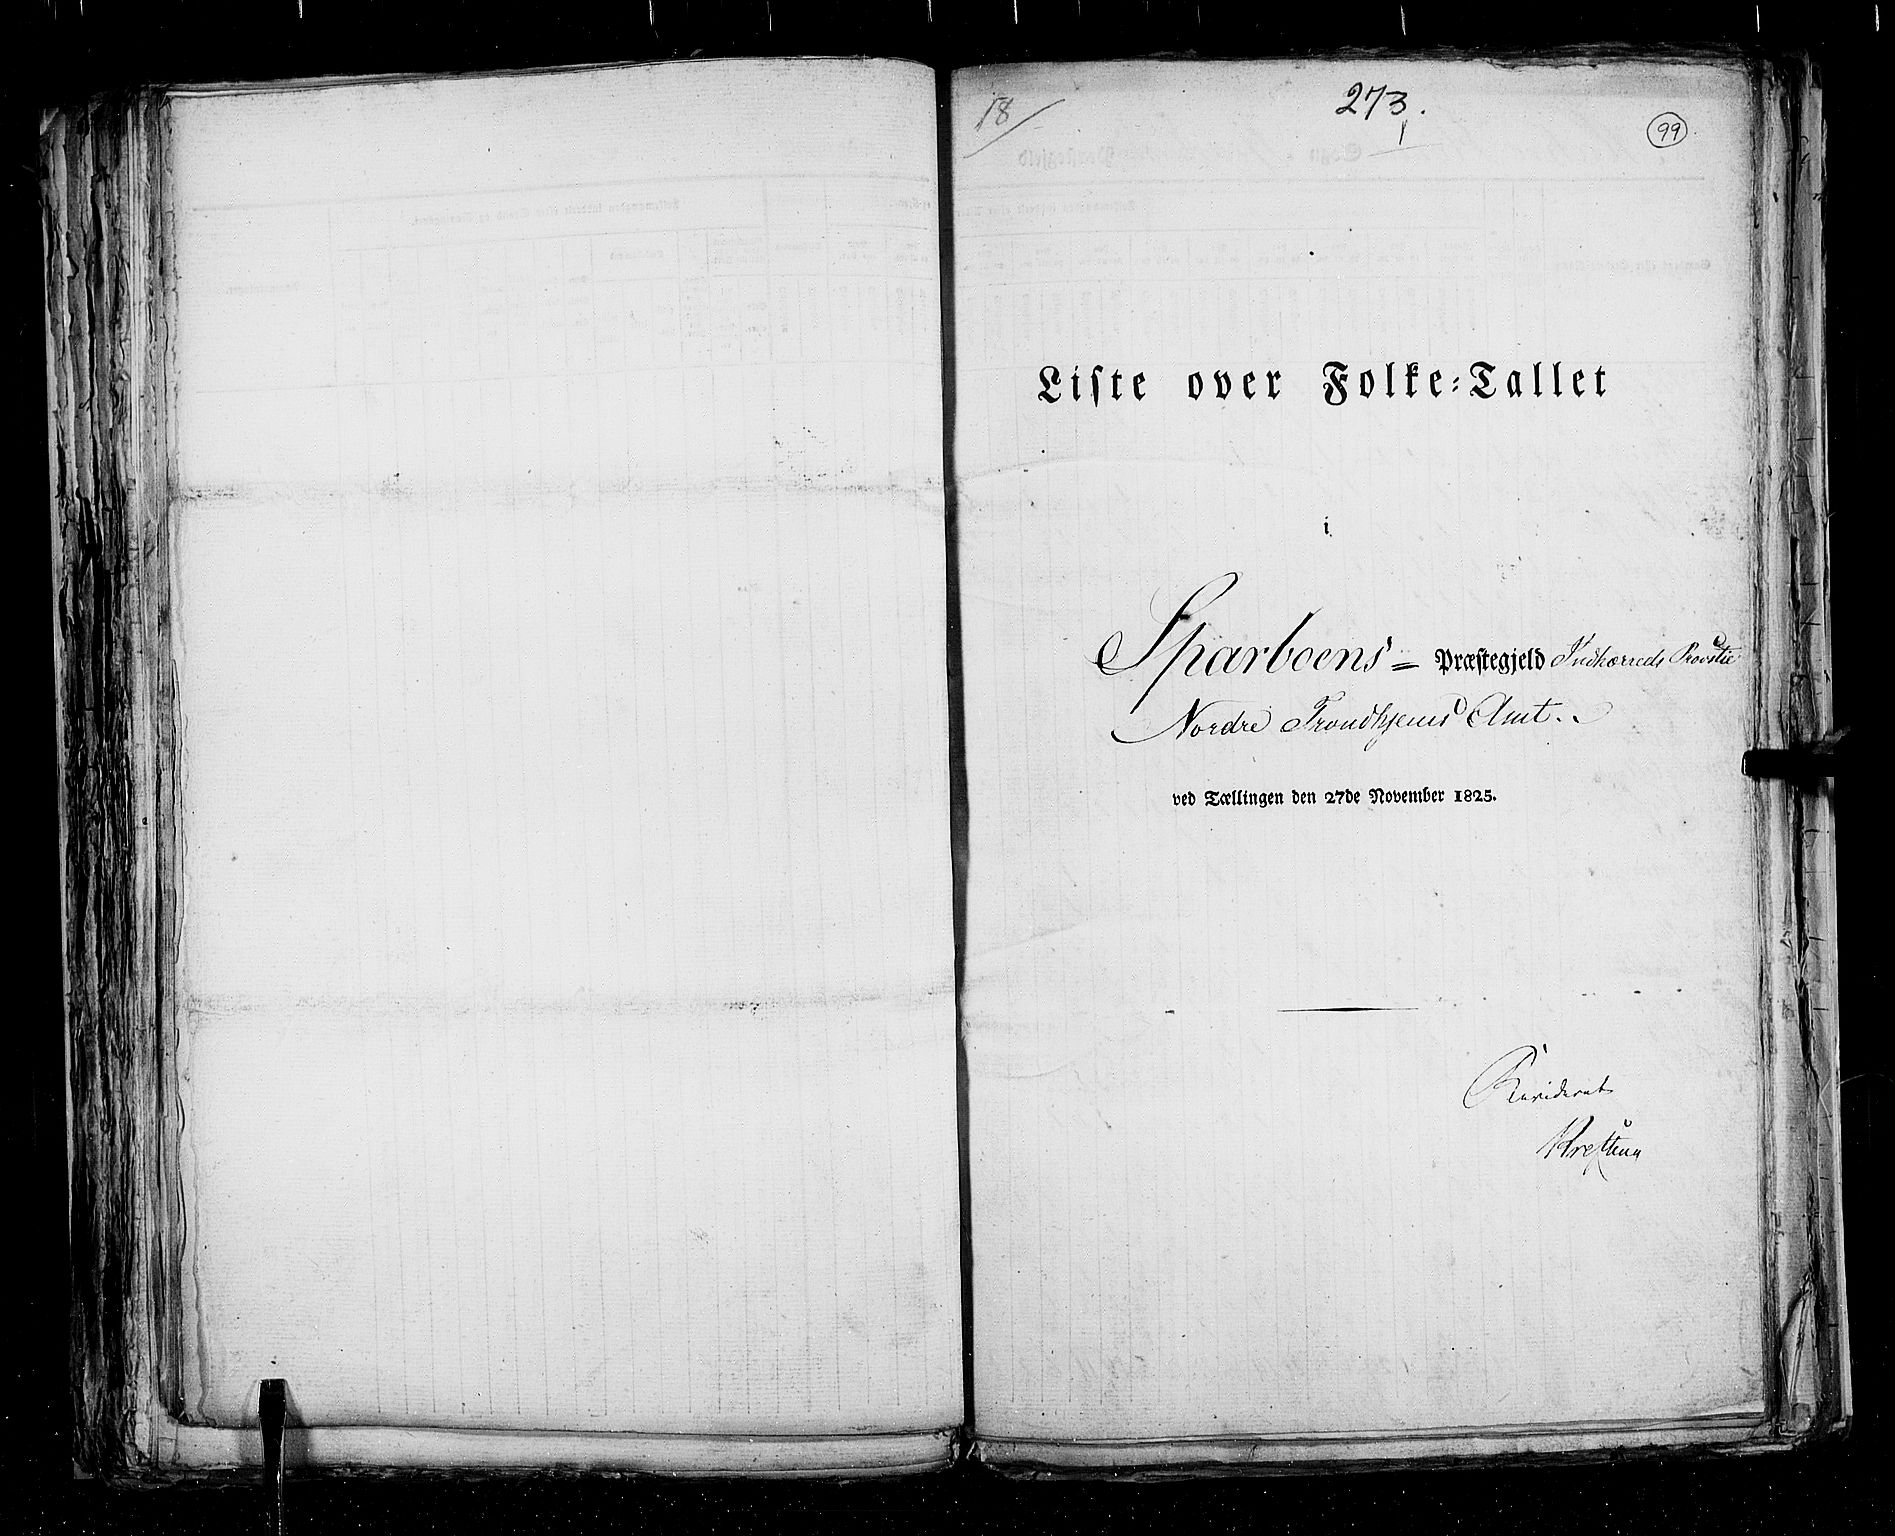 18/
273.
1
99
Liste over Folke=Tallet
i
Sparboens = Præstegjeld Indherreds Provstie
Nordre Trondhjems Amt.
ved Tællingen den 27de November 1825.
Revideret